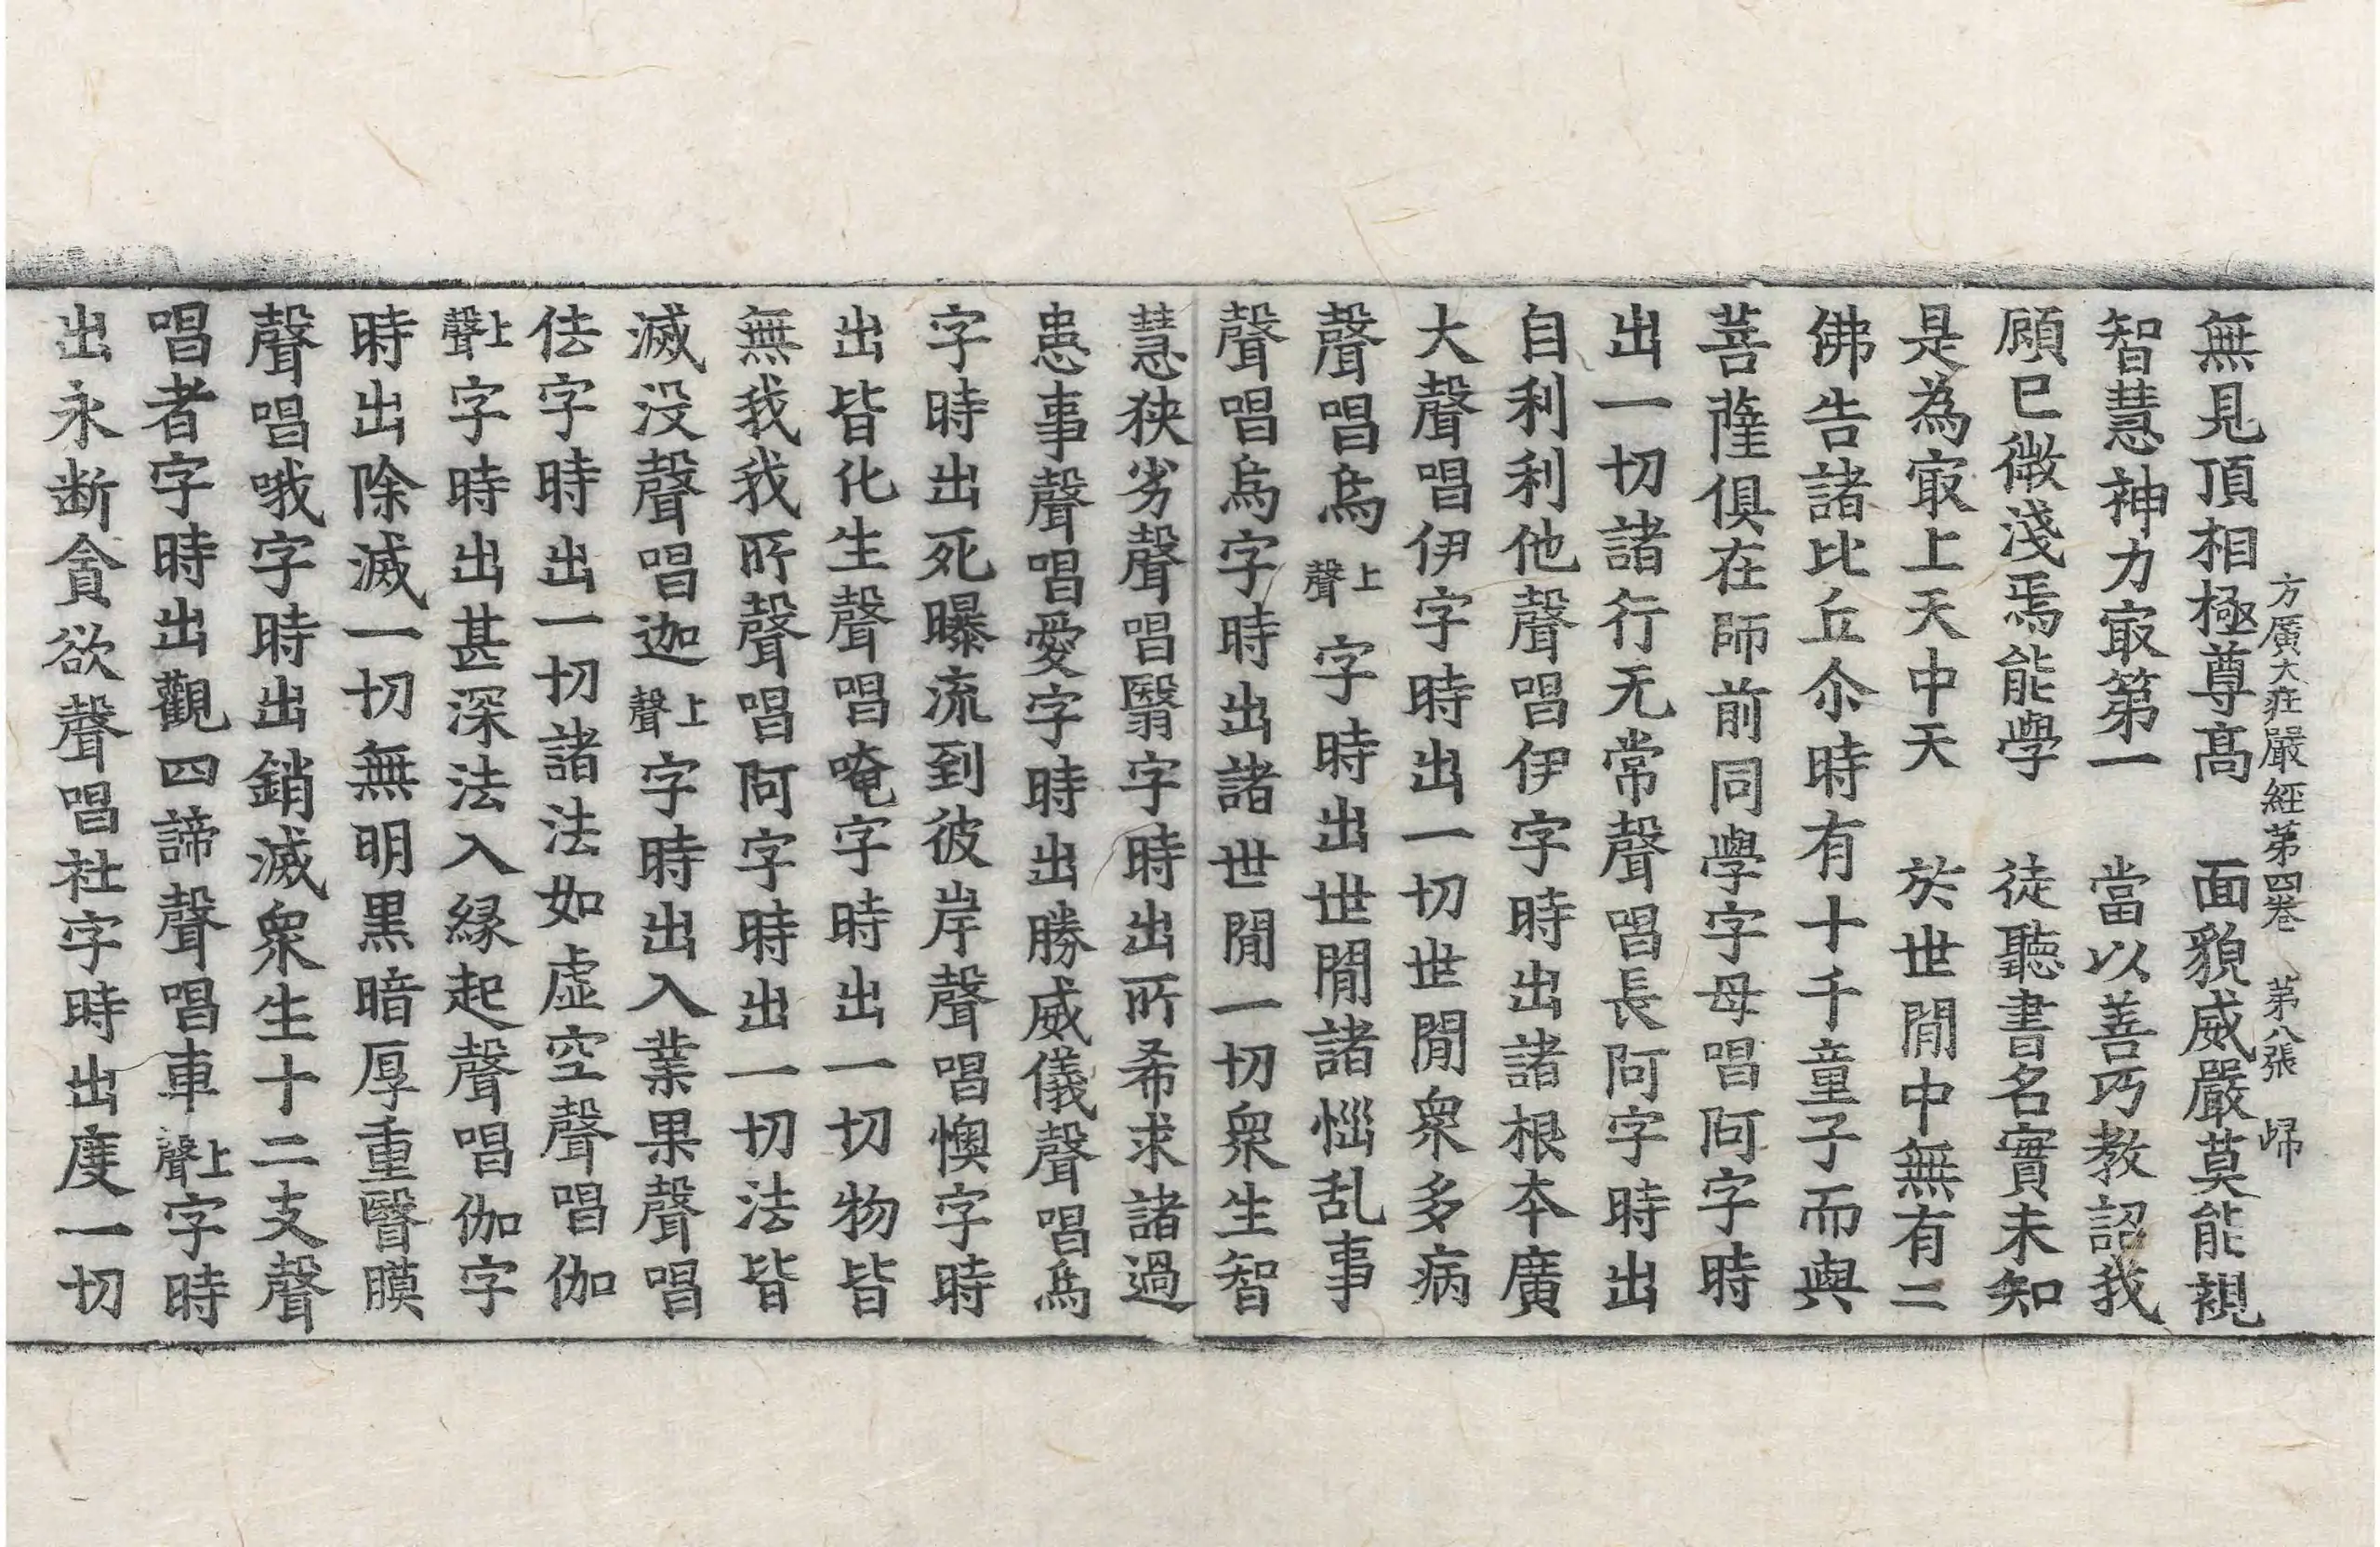 方廣大莊嚴經第四卷 第八張 歸
無見頂相極尊高 面貌威嚴莫能覩
智慧神力㝡第一 當以善巧教詔我
顧已微淺焉能學 徒聽書名實未知
是為㝡上天中天 於世閒中無有二
佛告諸比丘尒時有十千童子而與
菩薩俱在師前同學字母唱阿字時
出一切諸行无常聲唱長阿字時出
自利利他聲唱伊字時出諸根本廣
大聲唱伊字時出一切世閒衆多病
聲唱烏上聲字時出世閒諸惱乱事
聲唱烏字時出諸世閒一切衆生智
慧狹劣聲唱翳字時出所希求諸過
患事聲唱愛字時出勝威儀聲唱烏
字時出死曝流到彼岸聲唱懊字時
出皆化生聲唱唵字時出一切物皆
無我我所聲唱阿字時出一切法皆
滅没聲唱迦上聲字時出入業果聲唱
佉字時出一切諸法如虛空聲唱伽
上聲字時出甚深法入緣起聲唱伽字
時出除滅一切無明黑暗厚重瞖膜
聲唱哦字時出銷滅衆生十二支聲
唱者字時出觀四諦聲唱車上聲字時
出永断貪欲聲唱社字時出度一切